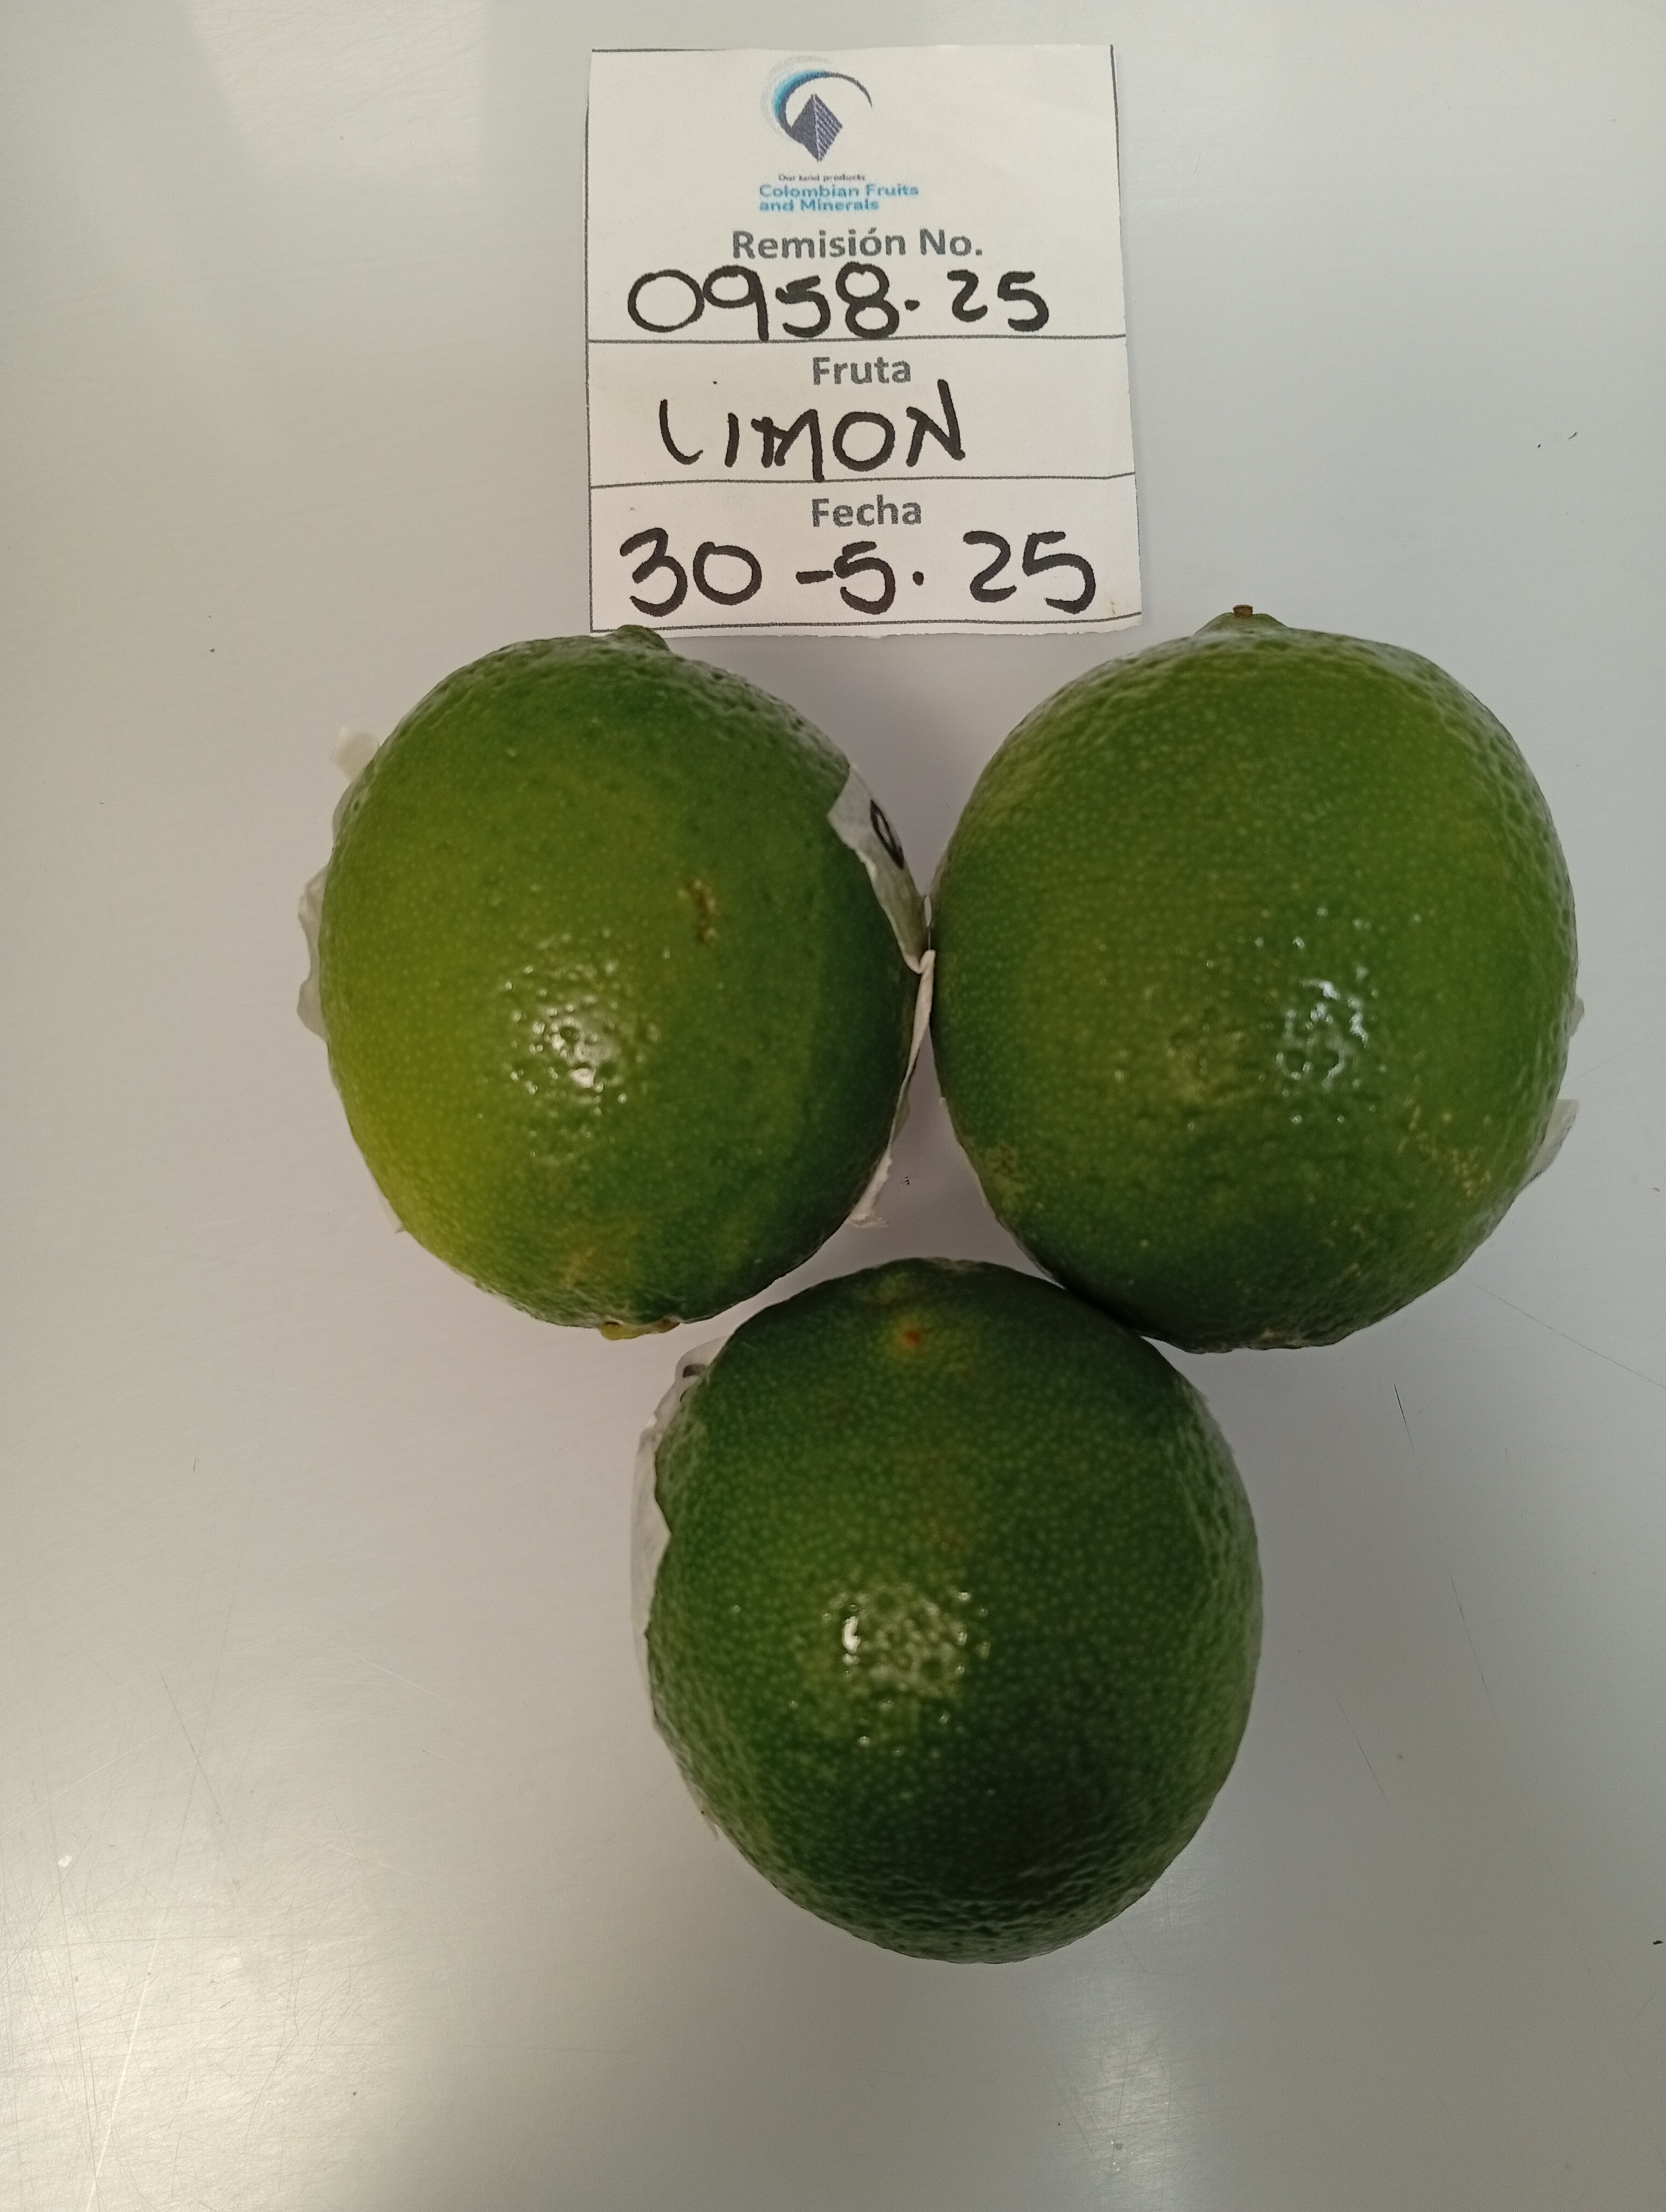 Our land products
Colombian Fruits
and Minerals
Remisión No.
0958-25
Fruta
LIMON
Fecha
30-5-25